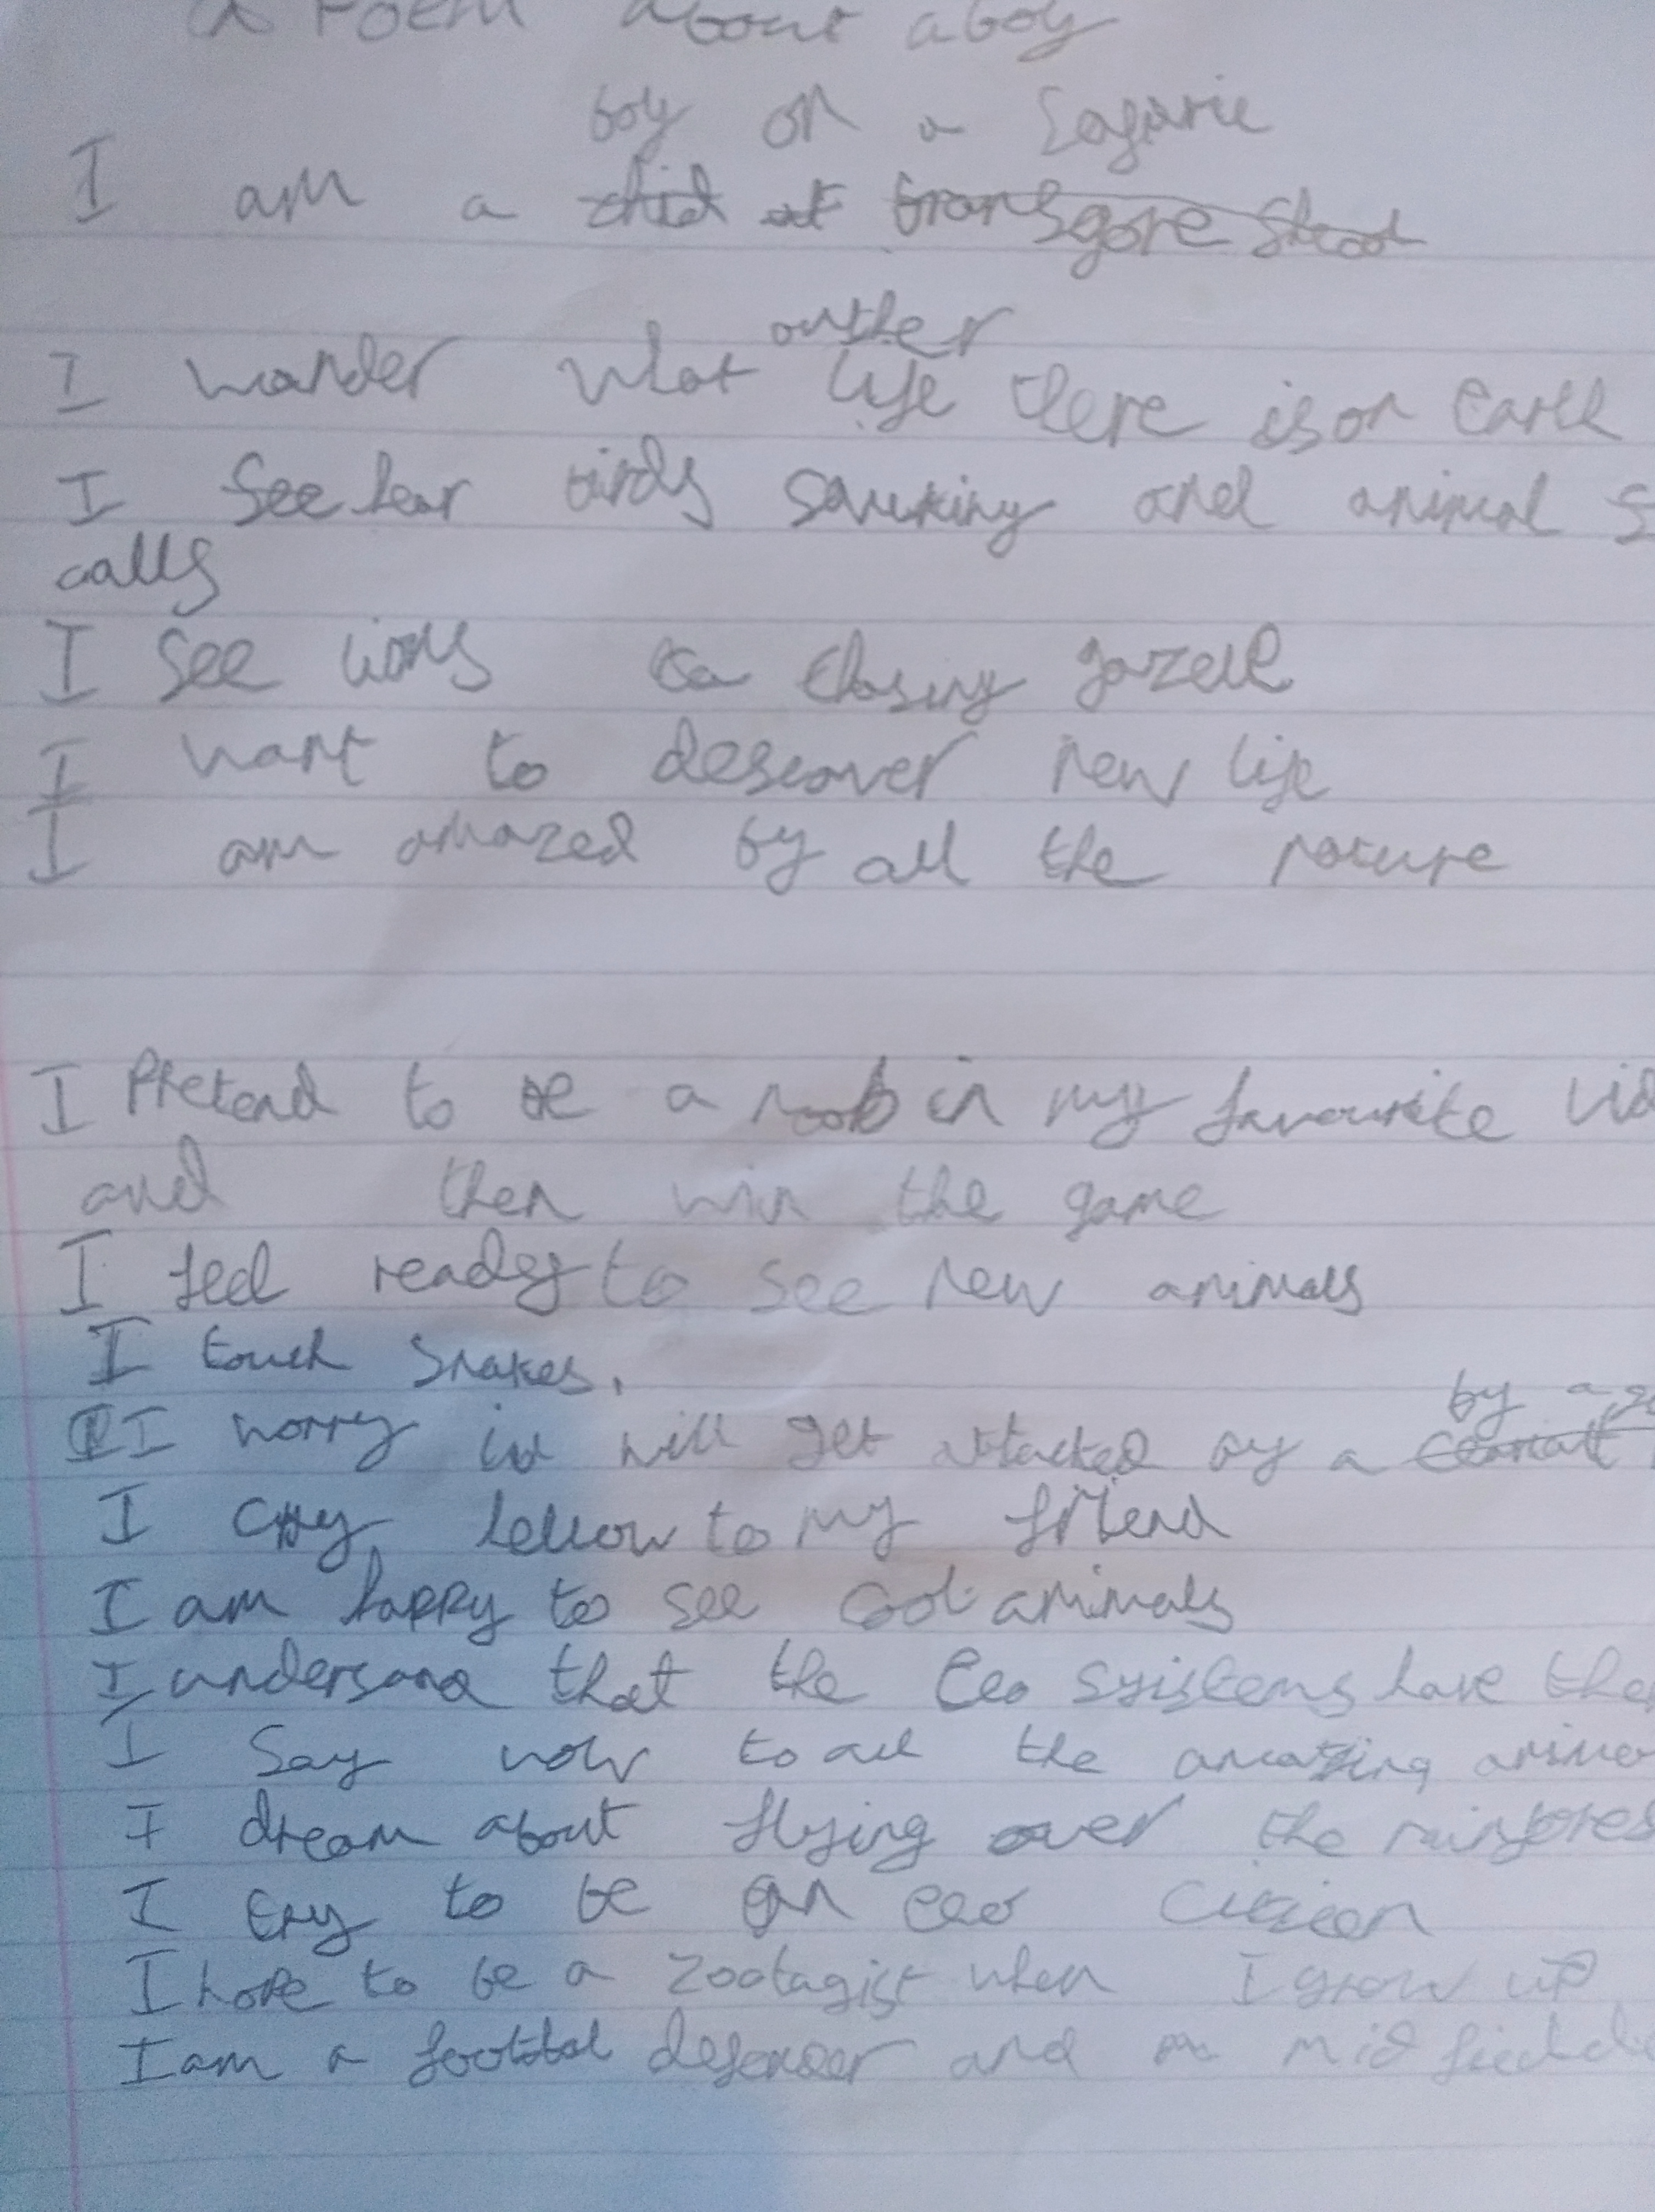 a Poem about a boy
boy on a Safarie
I am a chid at transgore Shool
outher
I wonder what life there is on Earth
I See hear birds and animal S
calls
I see lions to chasing gazell
I want to descover new life
I am amazed by all the nature
I Pretend to be a noob in my favourite vid
and then win the game
I feel ready to see new animals
I touch Snakes.
by a
I worry will get attacked by a
I cry hellow to my friend
I am happy to see cool animals
I undersand that the Eco systems have the
I Say wow to all the amazing anima
I dream about flying over the rainfores
I try to be an eco citizen
I hope to be a zootagist when I grow up
I am a football defender and midfield